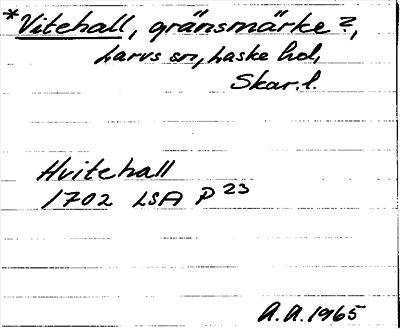 *Vitehall, gränsmärke?,
Larvs sn, Laske hd,
Skar. l.
Hvitehall
1702 LSA P 23
A.A. 1965